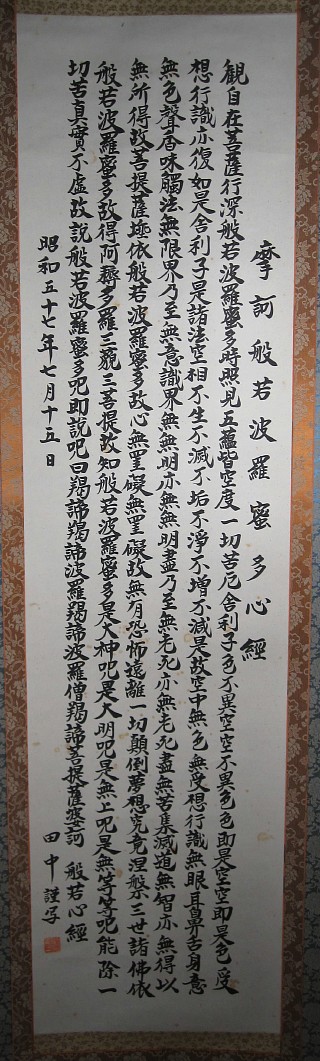 摩訶般若波羅蜜多心經
觀自在菩薩行深般若波羅蜜多時照見五蘊皆空度一切苦厄舎利子色不異空空不異色色即是空空即是色受
想行識亦復如是舎利子是諸法空相不生不滅不垢不淨不增不減是故空中無色無受想行識無眼耳鼻舌身意
無色聲香味觸法無眼界乃至無意識界無無明亦無無明盡乃至無老死亦無老死盡無苦集滅道無智亦無得以
無所得故菩提薩埵依般若波羅蜜多故心無罣礙無罣礙故無有恐怖遠離一切顛倒夢想究竟涅槃三世諸佛依
般若波羅蜜多故得阿耨多羅三藐三菩提故知般若波羅蜜多是大神呪是大明呪是無上呪是無等等呪能除一
切苦真實不虛故説般若波羅蜜多呪即説呪曰羯諦羯諦波羅羯諦波羅僧羯諦菩提薩婆訶 般若心經
昭和五十七年七月十五日
田中謹写